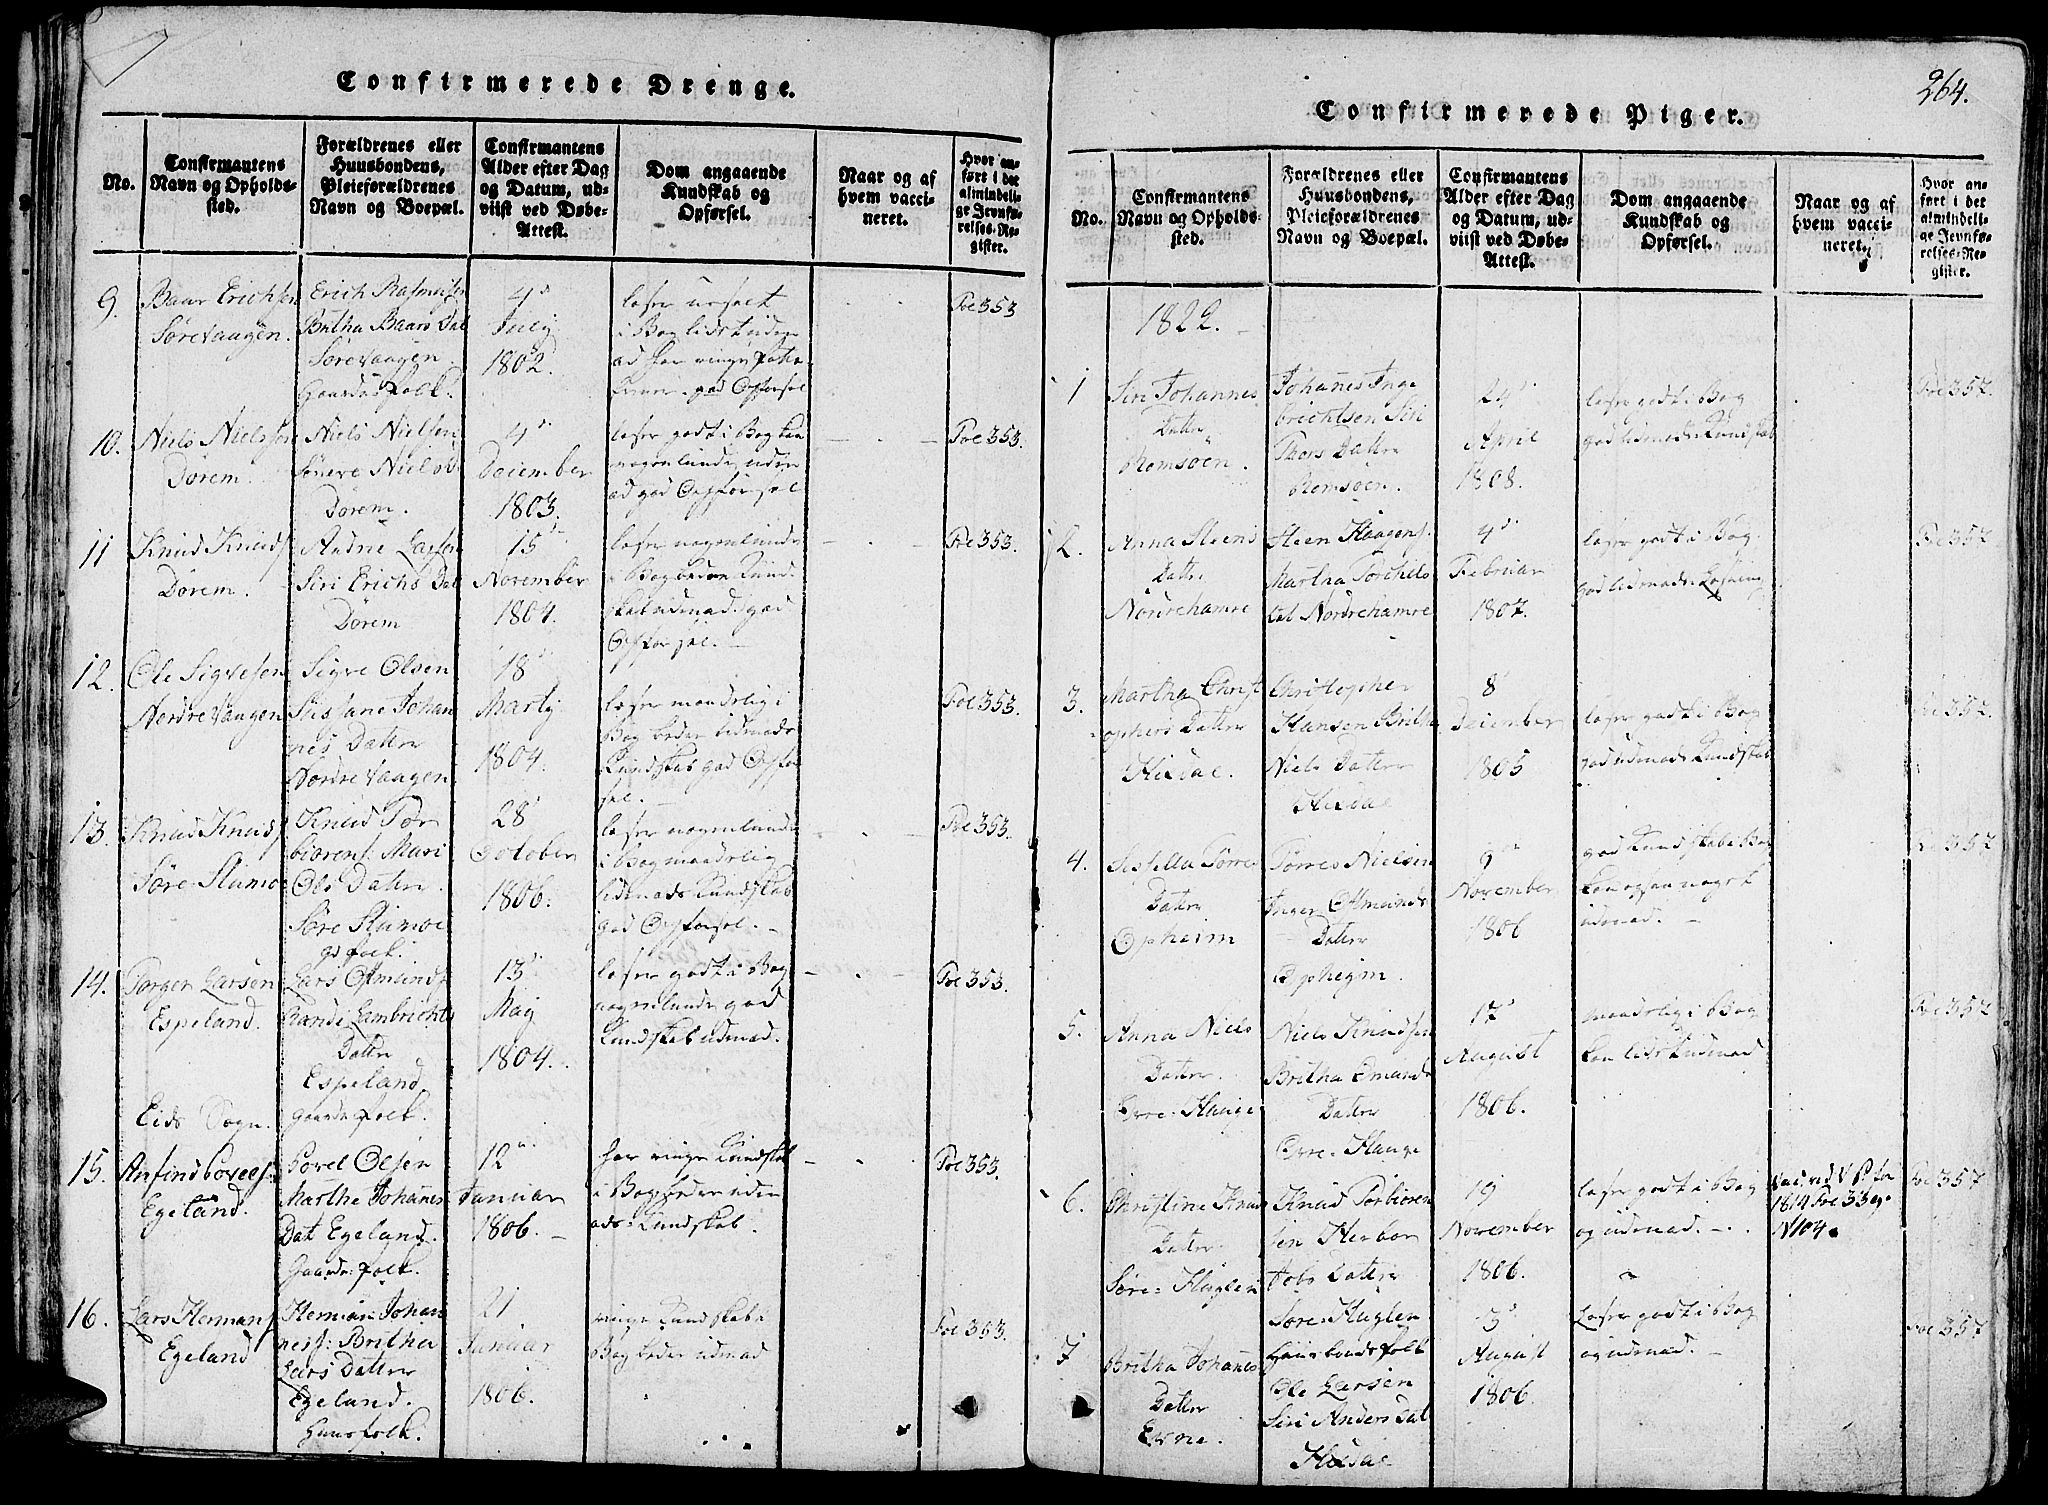 Confirmerede Drenge.
No.
Confirmantens
Navn og Opholds-
sted.
Forældrenes eller
Huusbondens,
Pleieforældrenes
Navn og Boepæl.
Confirmantens
Alder efter Dag
og Datum, ud-
viist ved Døbe-
Attest.
Dom angaaende
Kundskab og
Opførsel.
Naar og af
hvem vacci-
neret.
Hvor an-
ført i det
almindeli-
ge Jevnfø-
relses-Re-
gister.
9.
Baar Erichsen
Sørevaagen.
Erich Rasmusen
Britha Baars Dat
Sørevaagen.
Gaardsfolk.
4de
July
1802.
i Bog lidet uden
god Opførsel
Foe 353
10.
Niels Nielssen
Dørem.
Niels Nielsen
Niels
Dørem.
4de
December
1803.
læser godt i Bog kan
nogenlunde uden
ad god Opførsel
Foe 353.
11
Knud Knuds
Dørem.
Andrie Larsen
Siri Erichs Dat
Dørem
15de
November
1804.
læser nogenlunde
i Bog Kund-
skab udenad god
Opførsel.
Foe 353.
12.
Ole Sigvesen
Nordrevaagen
Sigve Olsen
Johan
nes Datter
Nordrevaagen
18
Marty
1804.
læser maadelig i
Bog
Kundskab god Opfør
sel.
Foe 353.
13.
Knud Knuds
Søre Stumoe
Knud Tor
biørens. Mari
Ols Datter.
Søre Stumoe
gd folk.
28
October
1806.
læser nogenlunde
i Bog maadelig
udenads Kundskab
god Opførsel.
Foe 353.
14.
Torger Larsen
Espeland.
Eids Sogn.
Lars Osmunds
Randi Lambrichts
Datter
Espeland
gaardsfolk.
13de
May
1804.
læser godt i Bog
nogenlunde god
Kundskab udenad.
Foe 353.
15.
Egeland.
Olsen
Marthe Johanes
Dat Egeland.
Gaardsfolk.
12
Januar
1806.
har ringe Kundskab
i Bog uden
ads Kundskab.
Foe 353.
16.
Lars Hermans
Egeland
Herman Johan
ness: Britha
Lars Datter
Egeland.
Huusfolk.
21
Januar
1806.
ringe Kundskab i
Bog udenad
Foe 353.
264.
Confirmerede Piger.
No.
Confirmantens
Navn og Opholds-
sted.
Forældrenes eller
Huusbondens,
Pleieforældrenes
Navn og Boepæl.
Confirmantens
Alder efter Dag
og Datum, ud-
viist ved Døbe-
Attest.
Dom angaaende
Kundskab og
Opførsel.
Naar og af
hvem vacci-
neret.
Hvor an-
ført i det
almindeli-
ge Jevnfø-
relses-Re-
gister.
1822.
1
Siri Johannes
Datter
Romsøen.
Johanes Inge
brechtsen Siri
Thors Datter
Romsøen.
24
April
1808.
læser godt i Bog
god udenads Kundskab
Foe 357.
2.
Anna Steens
Datter
Nordrehamre
Steen Haagens.
Martha Torchils
dat Nordrehamre
4de
Februar
1807.
læser godt i Bog.
god udenads
Foe 357
3.
Martha Christ
ophers Datter
Hisdal.
Christopher
Hansen Brith
Niels Datter
Hisdal
8
December
1805
læser godt i Bog
god udenads Kundskab
Foe 357.
4.
Sissella Torres
Datter
Opheim
Torres Nielsen
Inger Osmunds
Datter
Opheim.
9de
November
1806
god Kundskab i Bog
kan ogsaa noget
udenad.
Foe 357
5.
Anna Niels
Datter.
Øvre-Hauge
Niels Knudsen
Britha Omunds
Datter
Øvre-Hauge
17
August
1806.
maadelig i Bog
kan lidet udenad
Foe 357
6.
Christine Knuds
Datter
Søre-Huglen
Knud Torbiøren
sen Herbor
Jobs Datter
Søre-Huglen
Huusbondsfolk
19
November
1806.
læser godt i Bog
og udenad.
1814 Foe 33 og
N 104.
Foe 357
7
Britha Johanes
Datter
Ole Larsen
Siri Anders Dat
Hisdal
3
August
1806.
Læser godt i Bog
og udenad.
Foe 357